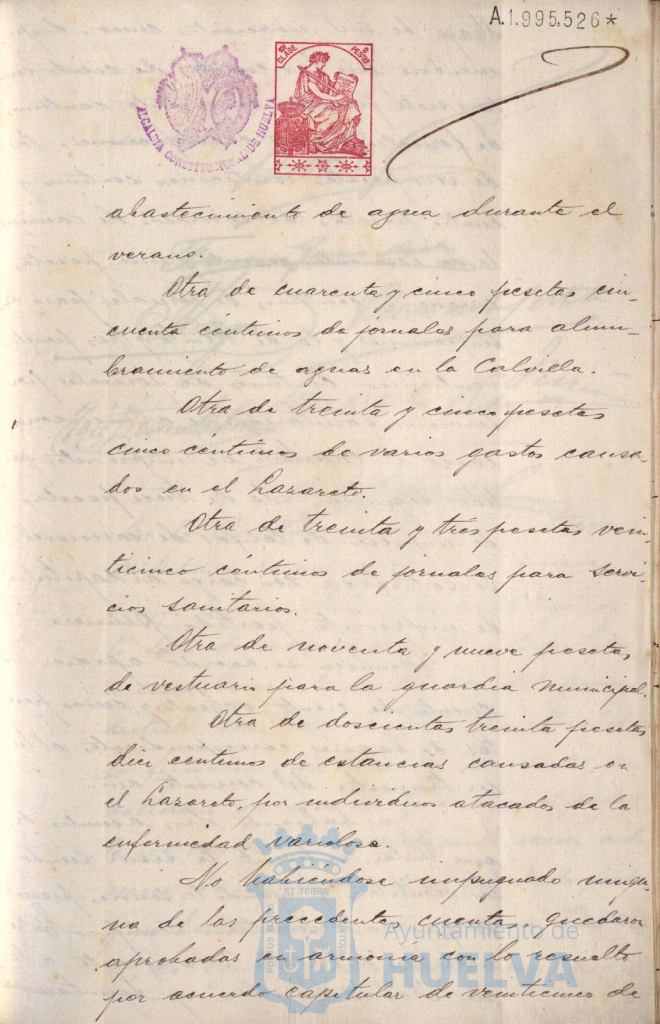 A.1.995,526*
10ª CLASE
2 PESTAS
ALCALDIA CONSTITUCIONAL DE HUELVA
abastecimiento de agua durante el
verano.
Otra de cuarenta y cinco pesetas cin-
cuenta céntimos de jornales para alum-
bramiento de aguas en la Calvilla.
Otra de treinta y cinco pesetas
cinco céntimos de varios gastos causa-
dos en el Lazareto.
Otra de treinta y tres pesetas vein-
ticinco céntimos de jornales para servi-
cios sanitarios.
Otra de noventa y nueve pesetas
de vestuario para la guardia municipal.
Otra de doscientas treinta pesetas
diez céntimos de estancias causadas en
el Lazareto, por individuos atacados de la
enfermedad variolosa.
No habiéndose impugnado ningu-
na de las precedentes cuentas, quedaron
aprobadas en armonía con lo resuelto
por acuerdo capitular de veinticinco de
Ayuntamiento de
HUELVA
PORTUS MARIS ET TERRAE CUSTODIA